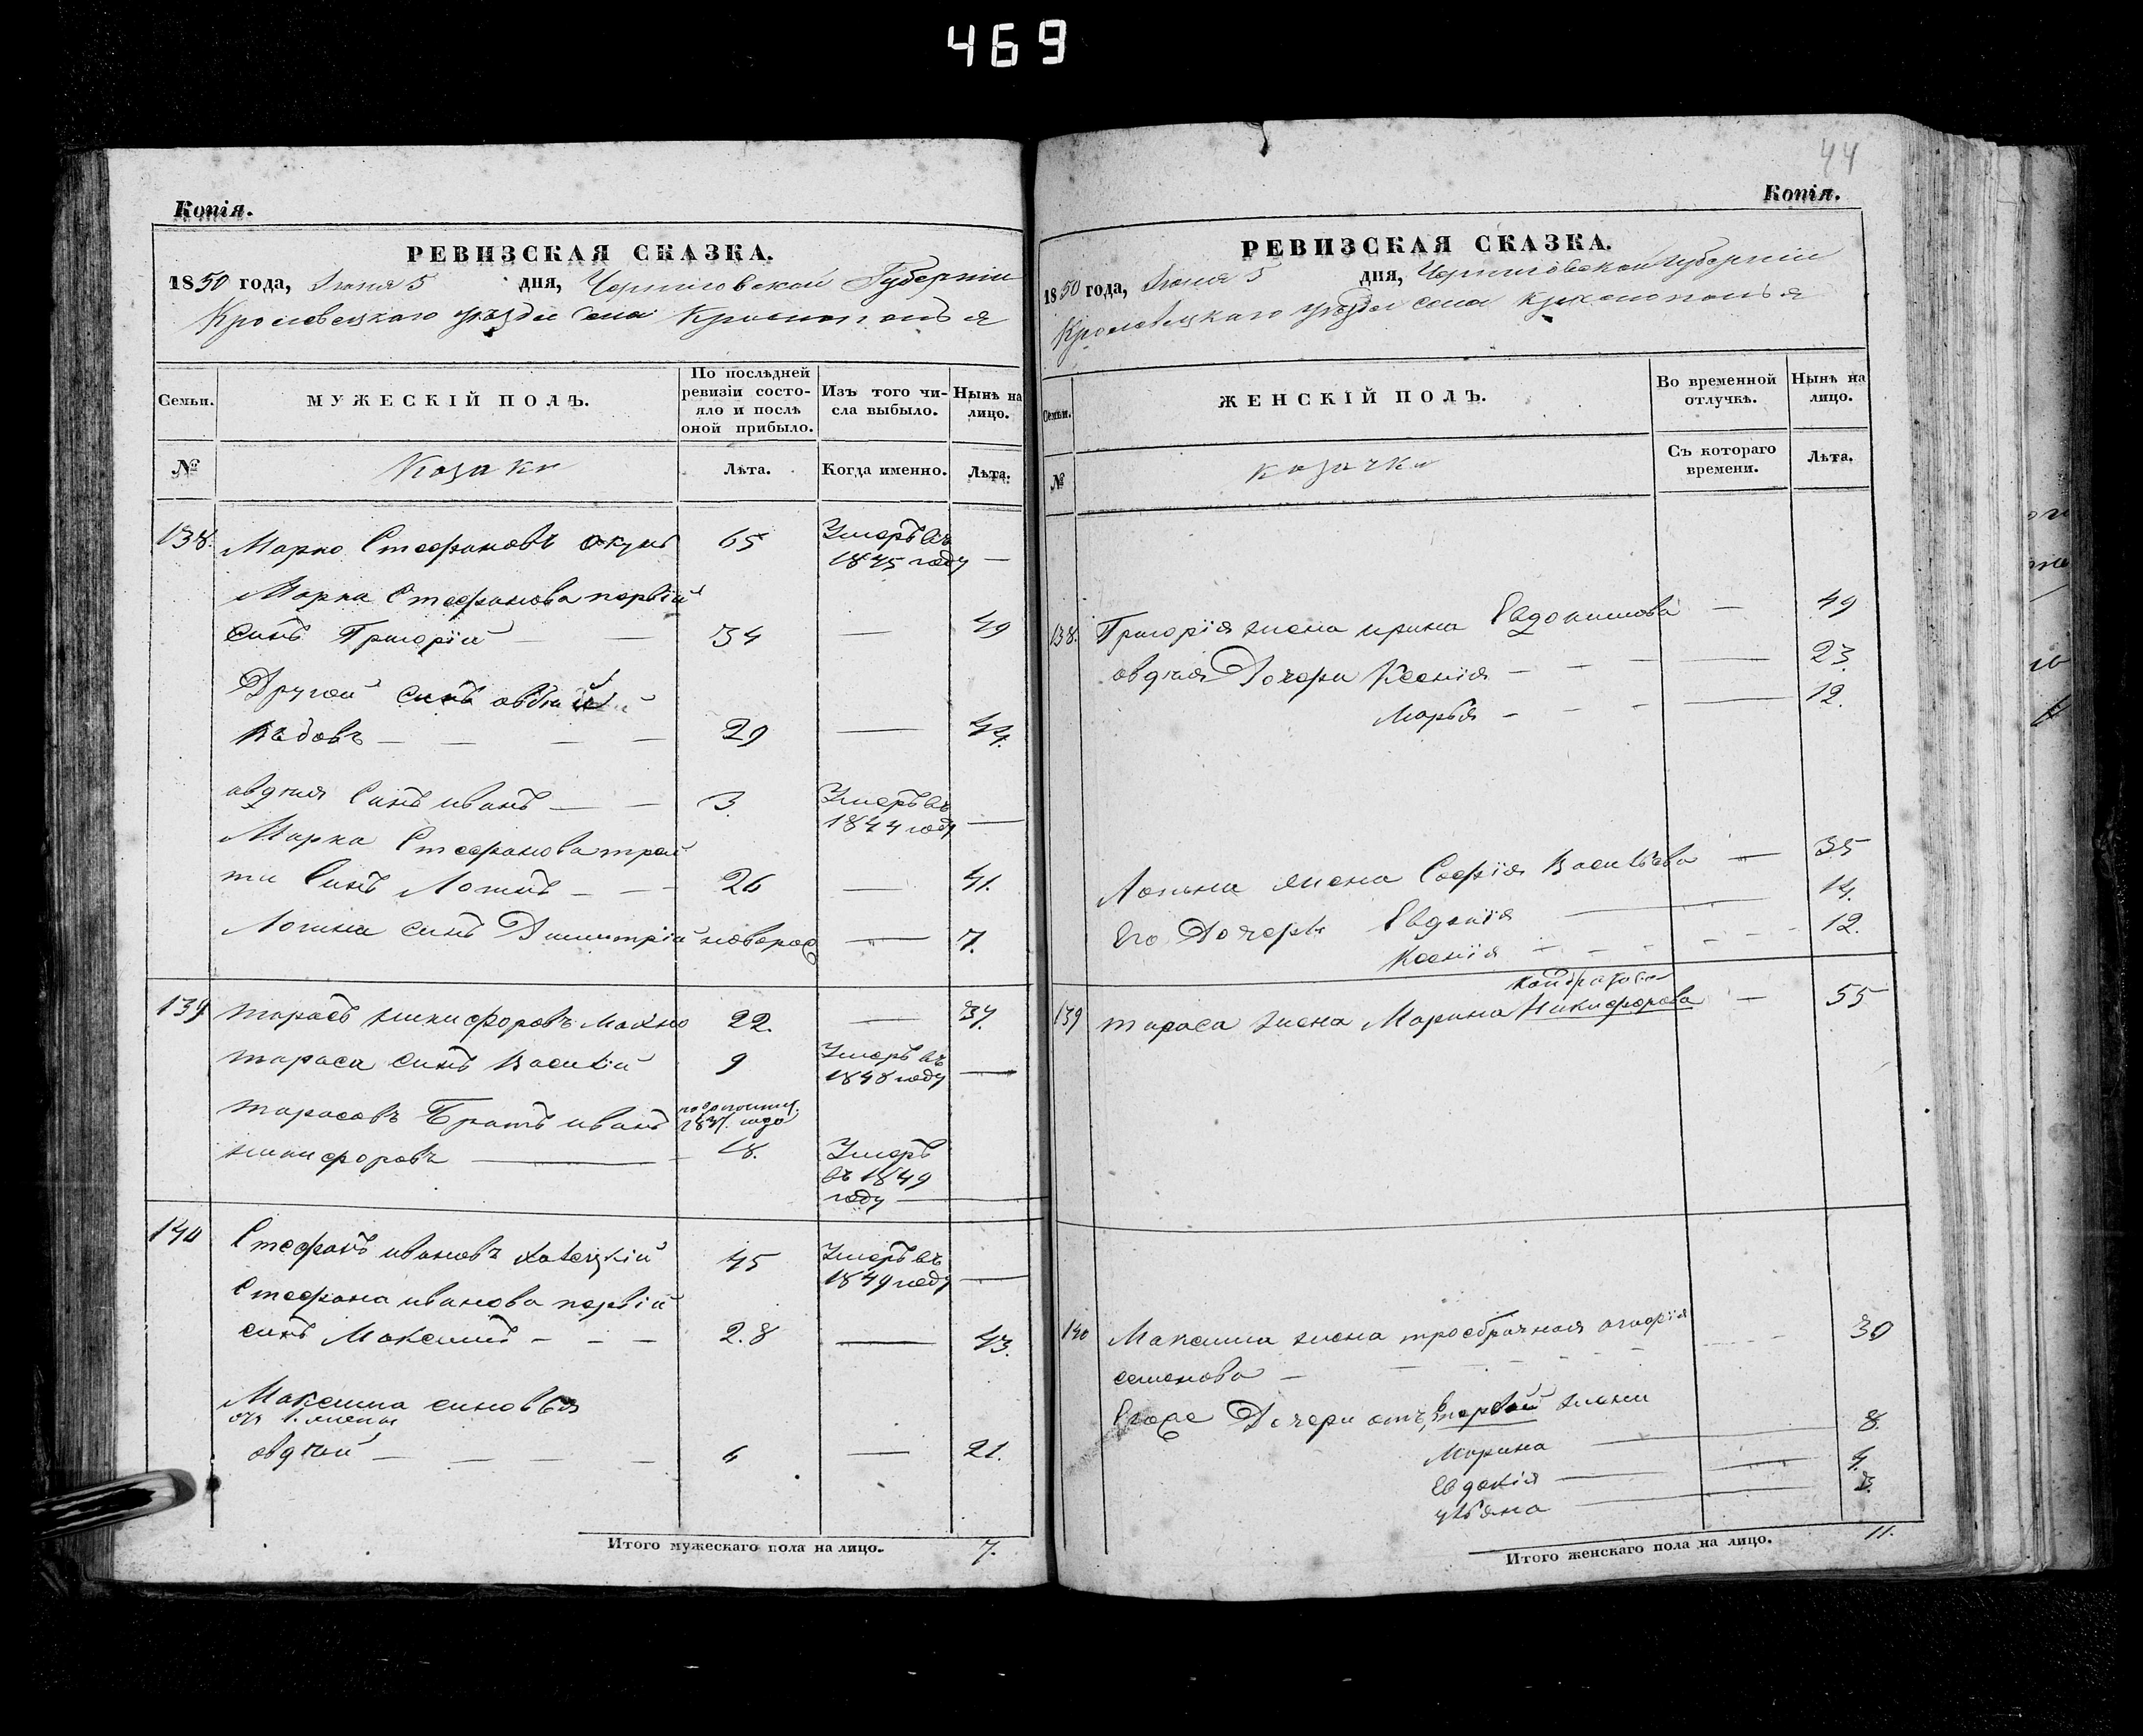 469
Копія.
РЕВИЗСКАЯ СКАЗКА.
1850 года, Іюня 5 дня, Черниговской Губерніи
Кролевецкаго уѣзда села Краснополья
Семьи.
МУЖЕСКІЙ ПОЛЪ.
По послѣдней
ревизіи состо-
яло и послѣ
оной прибыло.
Изъ того чи-
сла выбыло.
Нынѣ на
лицо.
№
Козаки
Лѣта.
Когда именно.
Лѣта.
138. Марко Стефановъ Окунь 65 Умеръ въ
1845 году —
Марка Стефанова первій
синъ Григорій — — 34 — 49
Другой синъ овдѣй
— — — — 29 — 44.
овдѣя Синъ иванъ — — 3. Умеръ въ
1844 году —
Марка Стефанова трей
ти Синъ Логинъ — — — 26 — 41.
Логина синъ Димитрій новорож — 7.
139 тарасъ никифоровъ Махно 22. — 37.
тараса синъ Василій 9 Умеръ въ
1848 году —
тарасовъ Братъ иванъ
1837. года
никифоровъ — 18. Умеръ
въ 1849
году —
140 Стефанъ ивановъ 45 Умеръ въ
1849 году —
Стефана иванова первій
синъ Максимъ — — — 28 — 43.
Максима синовья
отъ 1. жены
овдѣй — — — — 6 — 21.
Итого мужескаго пола на лицо. 7.
44
Копія.
РЕВИЗСКАЯ СКАЗКА.
1850 года, Іюня 5 дня, Черниговской Губерніи
Кролевецкаго уѣзда села Краснополья
Семьи.
ЖЕНСКІЙ ПОЛЪ.
Во временной
отлучкѣ.
Нынѣ на
лицо.
№
козачки
Съ котораго
времени.
Лѣта.
138. Григорія жена ирина Евдокимова — 49
овдѣя Дочери Ксенія — — — — 23.
Марья — — — — 12.
Логина жена Софія Васильева — 35
Его Дочеры Евдокія — 14.
Ксенія — — — — 12.
кондратова
139 тараса жена Марина Никифорова — 55
140 Максима жена троебрачная агафія 30
семенова —
Егоже Дочери отъ первой жены
Марина — 8.
Евдокія — 4.
улѣяна —
Итого женскаго пола на лицо. 11.